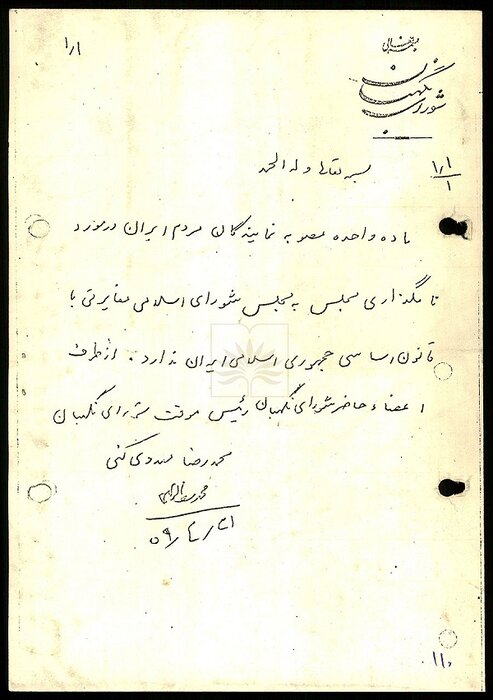 ۱/۱
بسمه تعالی
شورای نگهبان
بسمه تعالی و له الحمد
۱/۱
۱
ماده واحده مصوبه نمایندگان مردم ایران در مورد
نامگذاری مجلس به مجلس شورای اسلامی مغایرتی با
قانون اساسی جمهوری اسلامی ایران ندارد. از طرف
اعضاء حاضر شورای نگهبان رئیس موقت شورای نگهبان
محمد رضا مهدوی کنی
۵۹/
۱۱۰